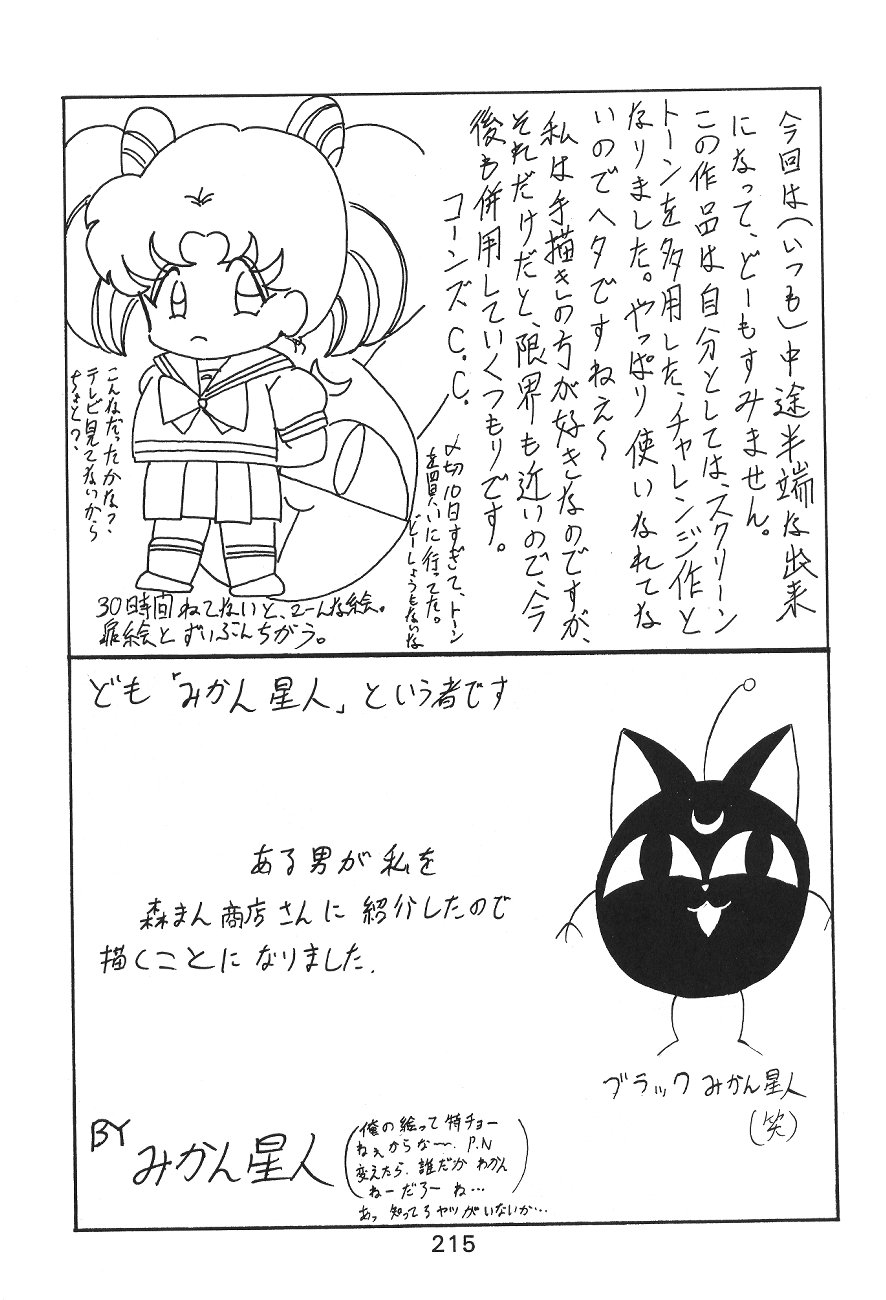 今回は(いつも)中途半端な出来
になって、どーもすみません。
この作品は自分としては、スクリーン
トーンを多用した、チャレンジ作と
なりました。やっぱり使いなれてな
いのでヘタですねえ〜
私は手描きの方が好きなのですが、
それだけだと、限界も近いので、今
後も併用していくつもりです。
コーンズC.C.
〆切10日すぎて、トーン
を買いに行ってた。
どーしょうもないな
こんなだったかな?
テレビ見てないから
ちょとっ、
30時間ねてないと、こーんな絵。
扉絵とずいぶんちがう。
ども「みかん星人」という者です
ある男が私を
森まん商店さんに紹介したので
描くことになりました.
ブラックみかん星人
(笑)
BY
みかん星人
(俺の絵って特チョー
ねぇからな〜. P.N
変えたら.誰だかわかん
ねーだろーね…)
あっ知ってるヤツがいないか…
215